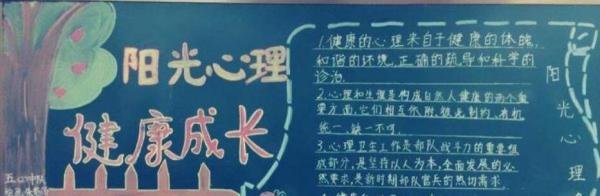 阳光心理
健康成长
1.健康的心理来自于健康的体魄,
和谐的环境,正确的疏导和科学的
诊治
2.心理和生理是构成自然人健康的两个重
要方面,它们相互依附,彼此制约,有机
统一,缺一不可.
3.心理卫生工作是部队战斗力的重要组
成部分,是坚持以人为本,全面发展的必
然要求,是新时期部队官兵的热切需求.
阳
光
心
理